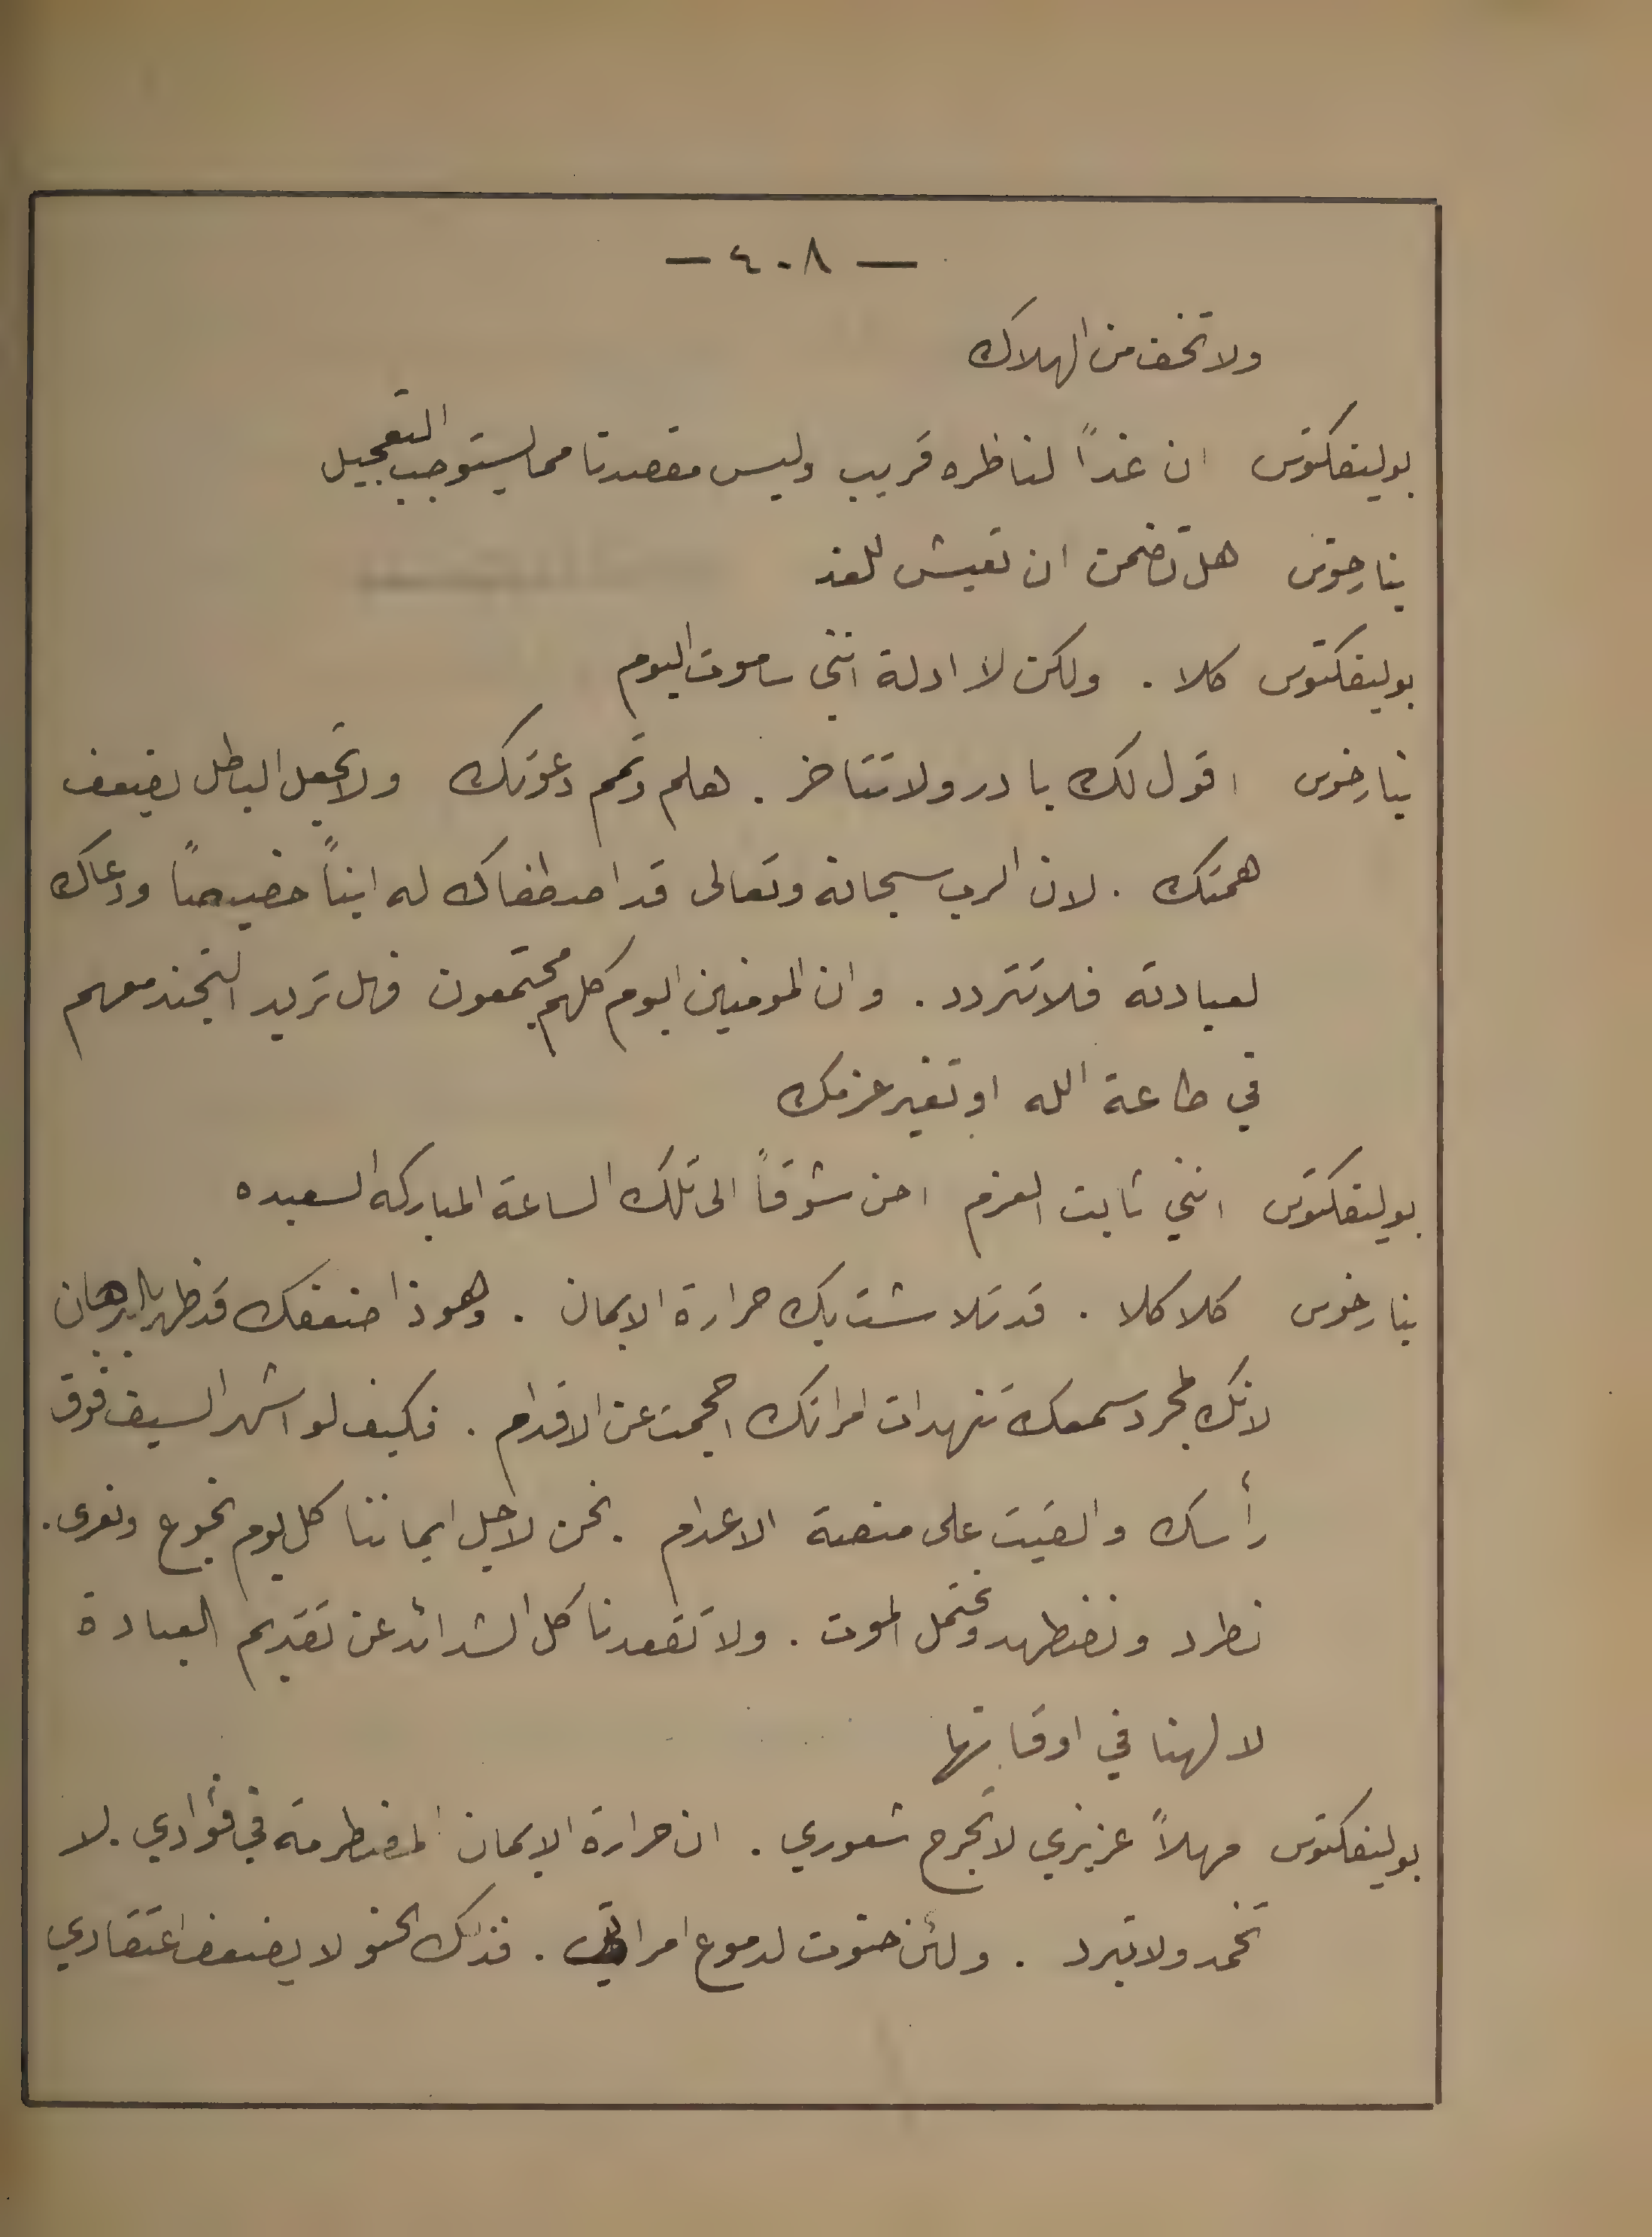 — ٤٠٨ —
ولا تخف من الهلاك
بوليفكتوس ان غداً لناظره قريب وليس مقصدنا مما يستوجب التعجيل
نيارخوس هل تضمن ان تعيش للغد
بوليفكتوس كلا . ولكن لا ادلة انني ساموت اليوم
نيارخوس اقول لك بادر ولا تتاخر . هلم وتمم دعوتك ولا تجعل الباطل يضعف
همتك . لان الرب سبحانه وتعالى قد اصطفاك له ابناً خصيصاً ودعاك
لعبادته فلا تتردد . وان المومنين اليوم كلهم مجتمعون فهل تريد التجند معهم
في طاعة الله او تغير عزمك
بوليفكتوس انني ثابت العزم احن شوقاً الى تلك الساعة المباركه السعيده
نيارخوس كلا كلا . قد تلاشت بك حرارة الايمان . وهوذا ضعفك قد ظهر بالبرهان
لانك لمجرد سمعك تنهدات امراتك احجمت عن الاقدام . فكيف لو اشهر السيف فوق
رأسك والقيت على منصة الاعدام . نحن لاجل ايماننا كل يوم نجوع ونعرى .
نطرد ونضطهد ونحتمل الموت . ولا تقعدنا كل الشدائد عن تقديم العبادة
لالهنا في اوقاتها
بوليفكتوس مهلاً عزيزي لا تجرح شعوري . ان حرارة الايمان المضطرمة في فؤادي . لا
تخمد ولا تبرد . ولئن حنوت لدموع امراتي . فذلك الحنو لا يضعف اعتقادي